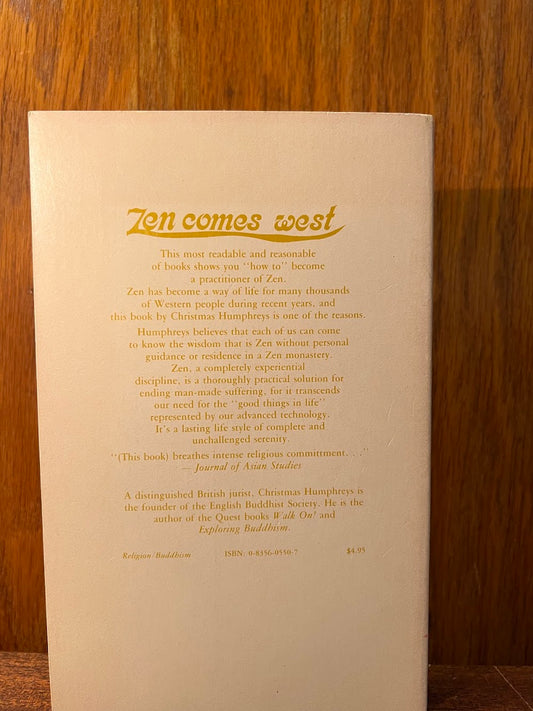 Zen comes west
This most readable and reasonable
of books shows you "how to" become
a practitioner of Zen.
Zen has become a way of life for many thousands
of Western people during recent years, and
this book by Christmas Humphreys is one of the reasons.
Humphreys believes that each of us can come
to know the wisdom that is Zen without personal
guidance or residence in a Zen monastery.
Zen, a completely experiential
discipline, is a thoroughly practical solution for
ending man-made suffering, for it transcends
our need for the "good things in life"
represented by our advanced technology.
It's a lasting life style of complete and
unchallenged serenity.
"(This book) breathes intense religious committment. . ."
— Journal of Asian Studies
A distinguished British jurist, Christmas Humphreys is
the founder of the English Buddhist Society. He is the
author of the Quest books Walk On! and
Exploring Buddhism.
Religion/Buddhism ISBN: 0-8356-0550-7 $4.95